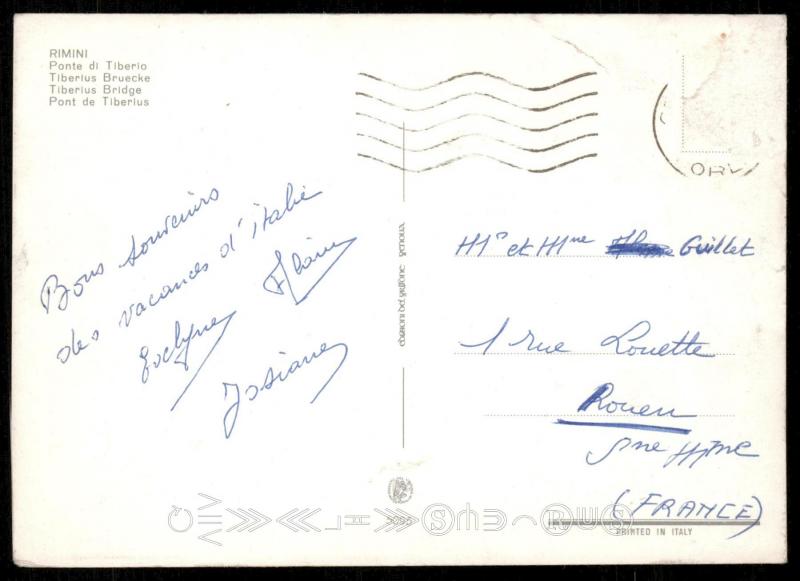 RIMINI
Ponte di Tiberio
Tiberius Bruecke
Tiberius Bridge
Pont de Tiberius
Bons souvenirs
des vacances d'italie
Evelyne Alain
Josiane
EDIZIONI DEL GRIFONE GENOVA
ORV
Mr et Mme Guillet
1 rue Louette
Rouen
Sne Mme
(FRANCE)
PRINTED IN ITALY